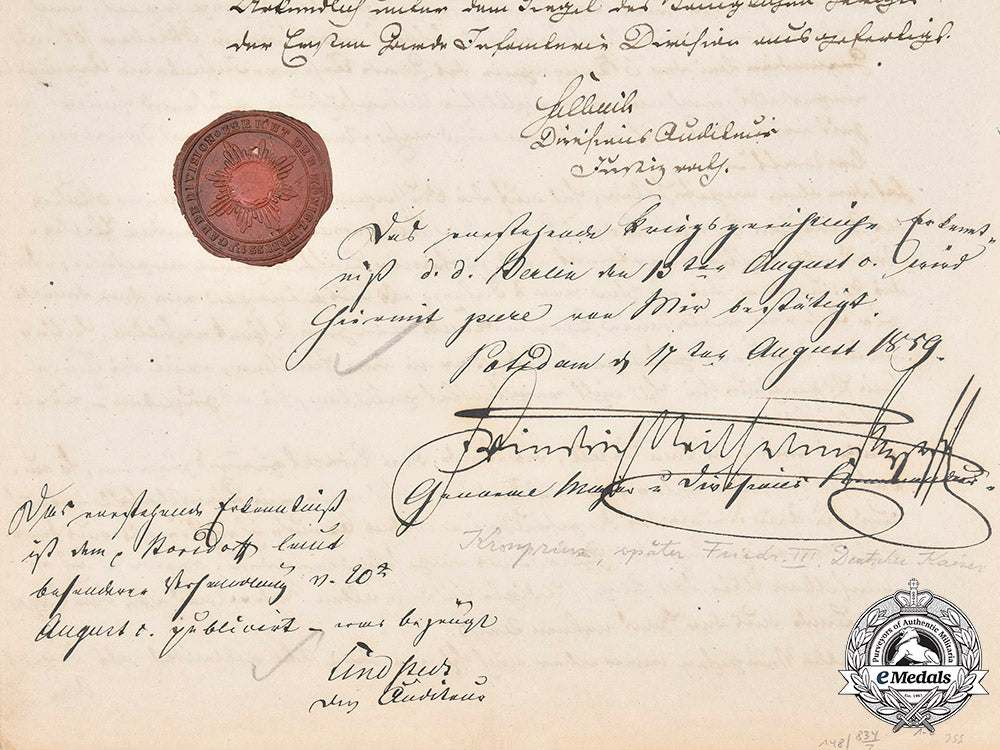 Urkundlich unter dem Siegel des Königlichen Gerichts
der Ersten Garde Infanterie Division ausgefertigt.
Divisions Auditeur
Justizrath.
GERICHT DER KÖNIGL. PREUSS. GARDE DIVISION
Das vorstehende kriegsgerichtliche Erkennt-
niß d. d. Berlin den 13ten August c. wird
hiermit pure von Mir bestätigt.
Potsdam d 17ten August 1859.
Friedrich Wilhelm
General Major u Divisions Commandeur.
Kronprinz, später Friedr. III Deutscher Kaiser
Das vorstehende Erkenntniß
ist dem laut
besonderer Verhandlung v. 20t
August c. publicirt – was bezeugt
Div Auditeur
Purveyors of Authentic Militaria
eMedals
148/834/7